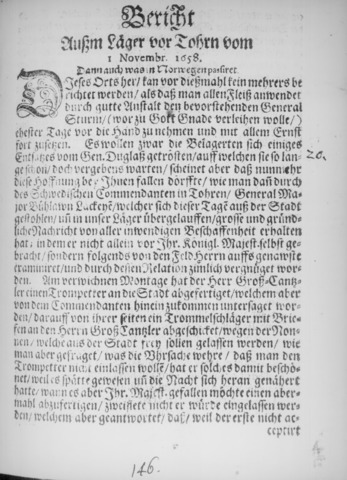 Bericht
Außm Läger vor Tohrn vom
1 Novembr. 1658.
Dann auch was in Norwegen passiret.
DJeses Orts her/ kan vor dießmahl kein mehrers be
richtet werden/ als daß man allen Fleiß anwendet
durch gutte Anstalt den bevorstehenden General
Sturm/ (wor zu Gott Gnade verleihen wolle/)
ehester Tage vor die Hand zu nehmen und mit allem Ernst
fort zusetzen. Es wollen zwar die Belägerten sich einiges
Entsatzes vom Gen. Duglaß getrösten/ auff welchen sie so lan-
ge schon/ doch vergebens warten/ scheinet aber daß nunmehr
diese Hoffnung bey Jhnen fallen dörffte/ wie man daß durch
des Schwedischen Commendanten in Tohren/ General Ma
jor Bühlawn Lackeyē/ welcher sich dieser Tage auß der Stadt
gestohlen/ uñ in unser Läger übergelauffen/ grosse und gründ-
liche Nachricht von aller inwendigen Beschaffenheit erhalten
hat/ in dem er nicht allein vor Jhr. Königl. Majest. selbst ge-
bracht/ sondern folgends von den Feld Herrn auffs genawste
examiniret/ und durch dessen Relation zimlich vergnüget wor-
den. Am verwichnen Montage hat der Herr Groß-Cantz-
ler einen Trompetter an die Stadt abgefertiget/ welchem aber
von dem Commendanten hinein zukommen untersaget wor-
den/ darauff von jhrer seiten ein Trommelschläger mit Brie-
fen an den Herrn Groß Cantzler abgeschicket/ wegen der Non-
nen/ welche aus der Stadt frey sollen gelassen werden/ wie
man aber gefraget/ was die Uhrsache wehre/ daß man den
Trompetter nicht einlassen wolle/ hat er solches damit beschö-
net/ weil es spätte gewesen uñ die Nacht sich heran genähert
hatte/ wann es aber Jhr. Majest. gefallen möchte einen aber-
mahl abzufertigen/ zweiffelte nicht er würde eingelassen wer-
den/ welchem aber geantwortet/ daß/ weil der erste nicht ac-
ceptirt
20.
146.